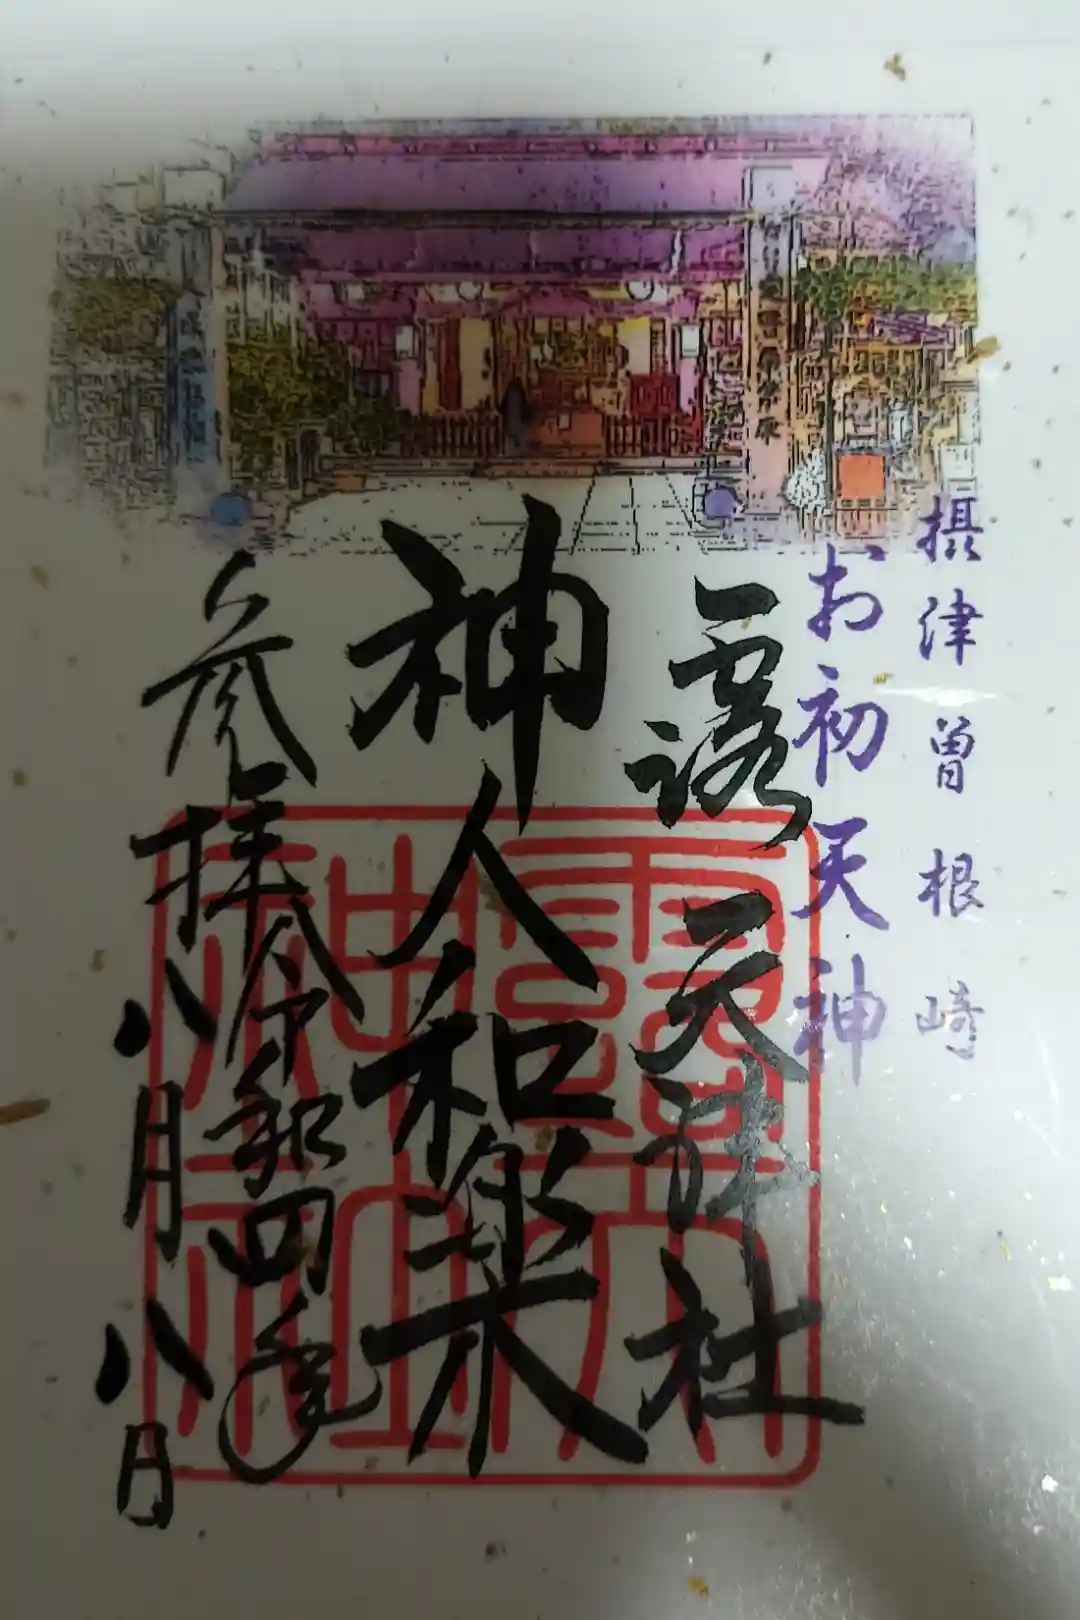 摂津曽根崎
お初天神
露天神社
神人和楽
参拝令和四年
八月八日
露天神社